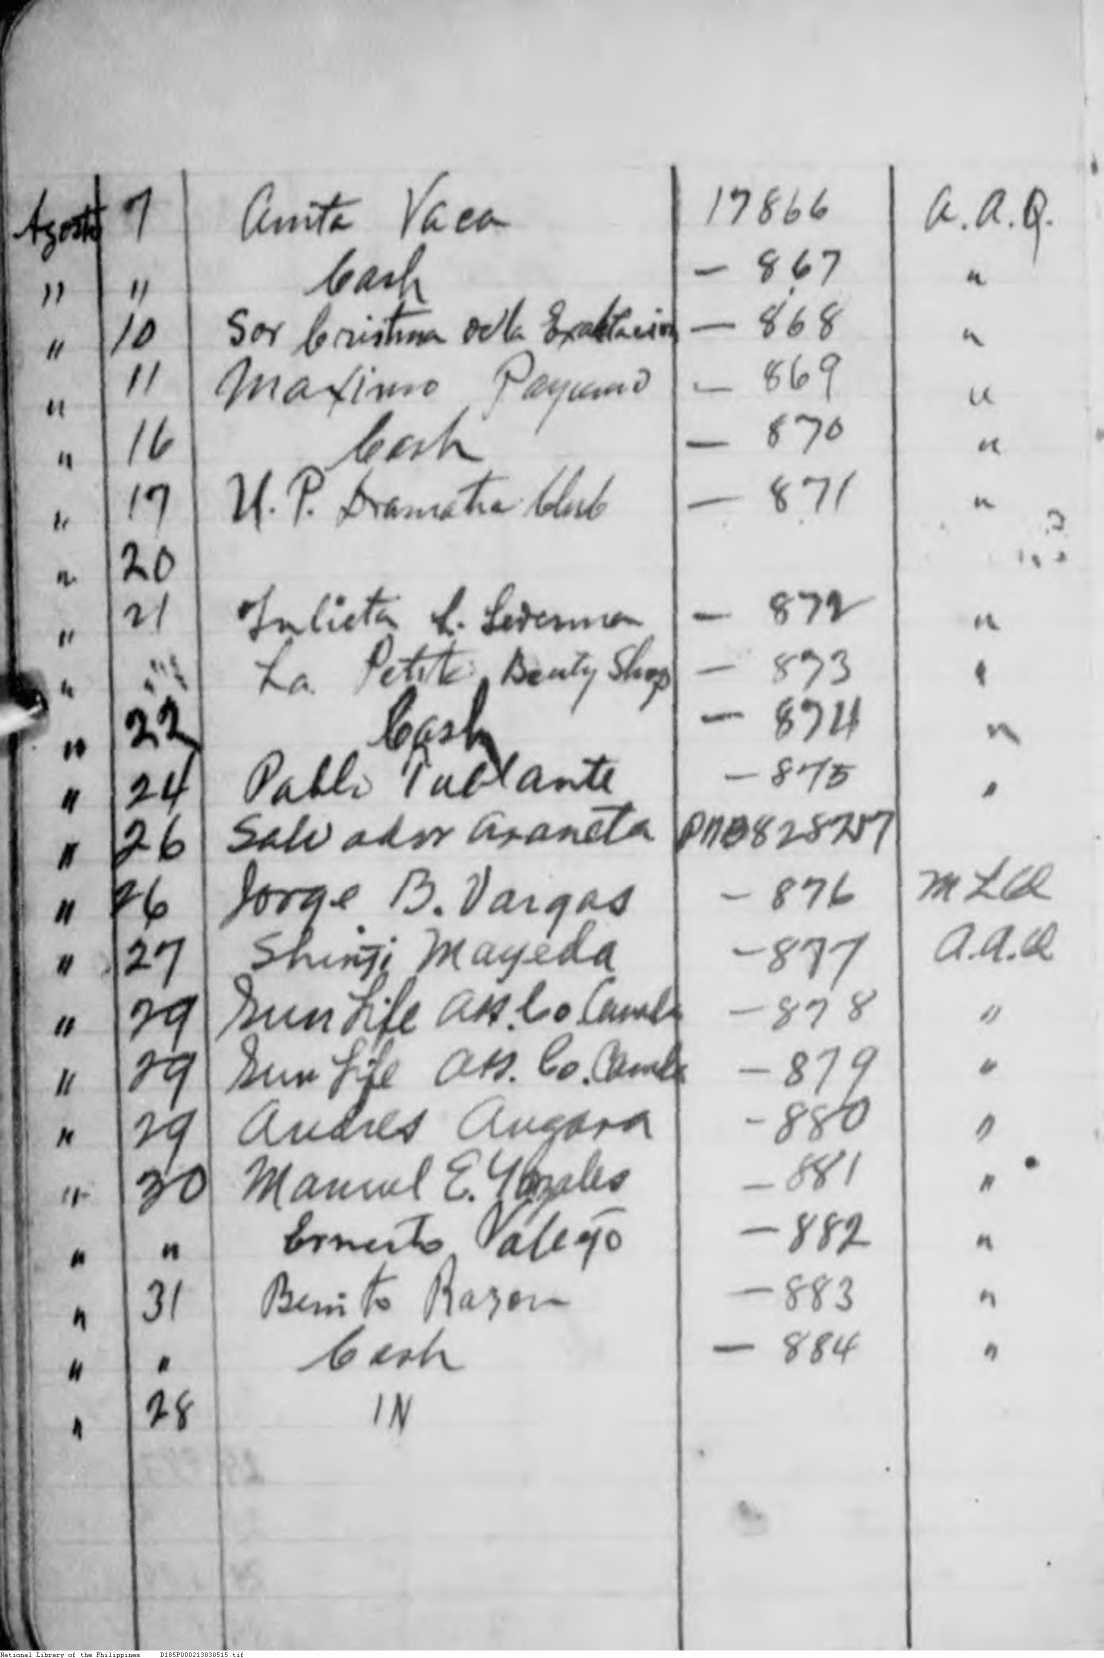 Agosto 7 Anita Vaca 17866 A.A.Q.
" " Cash — 867 "
" 10 Sor Cristina de la Exaltacion — 868 "
" 11 Maximo Payumo — 869 "
" 16 Cash — 870 "
" 17 U.P. Dramatic Club — 871 "
" 20
" 21 Julieta L. Lederman — 872 "
" La Petite Beauty Shop — 873 "
" 22 Cash — 874 "
" 24 Pablo Tablante — 875 "
" 26 Salvador Araneta PNB
" 26 Jorge B. Vargas — 876 MLQ
" 27 Shinji Mayeda — 877 A.A.Q
" 29 Sun Life Ass. Co Canada — 878 "
" 29 Sun Life Ass. Co. Canada — 879 "
" 29 Andres Angara - 880 "
" 30 Manuel E. — 881 "
" " Ernesto Vallejo — 882 "
" 31 Benito Razon — 883 "
" " Cash — 884 "
" 28 IN
National Library of the Philippines D185P000213838515.tif